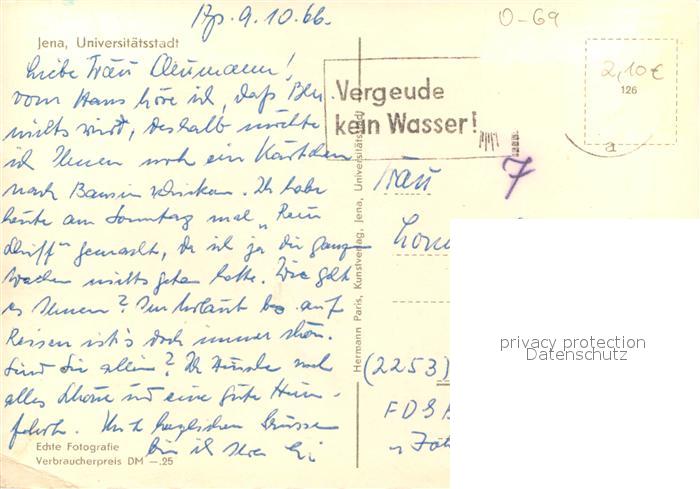 9.10.66.
O-69
Jena, Universitätsstadt
Liebe Frau Neumann!
vom Haus höre ich, daß
nichts wird, deshalb möchte
ich Ihnen noch ein Kärtchen
nach Bansin schicken. Ich habe
heute am Sonntag mal „Rein
gemacht, da ich ja die ganzen
Wochen nichts getan hatte. Wie geht
es Ihnen? Im Urlaub bzw. auf
Reisen ist's doch immer schön.
Sind Sie allein? Ich wünsche noch
alles Schöne und eine gute Heim-
fahrt. Mit herzlichen Grüssen
bin ich Ihre
Echte Fotografie
Verbraucherpreis DM —.25
Hermann Paris, Kunstverlag, Jena, Universitätsstadt
Vergeude
kein Wasser!
2,10€
126
a
7
Frau
(2253)
FDGB
privacy protection
Datenschutz